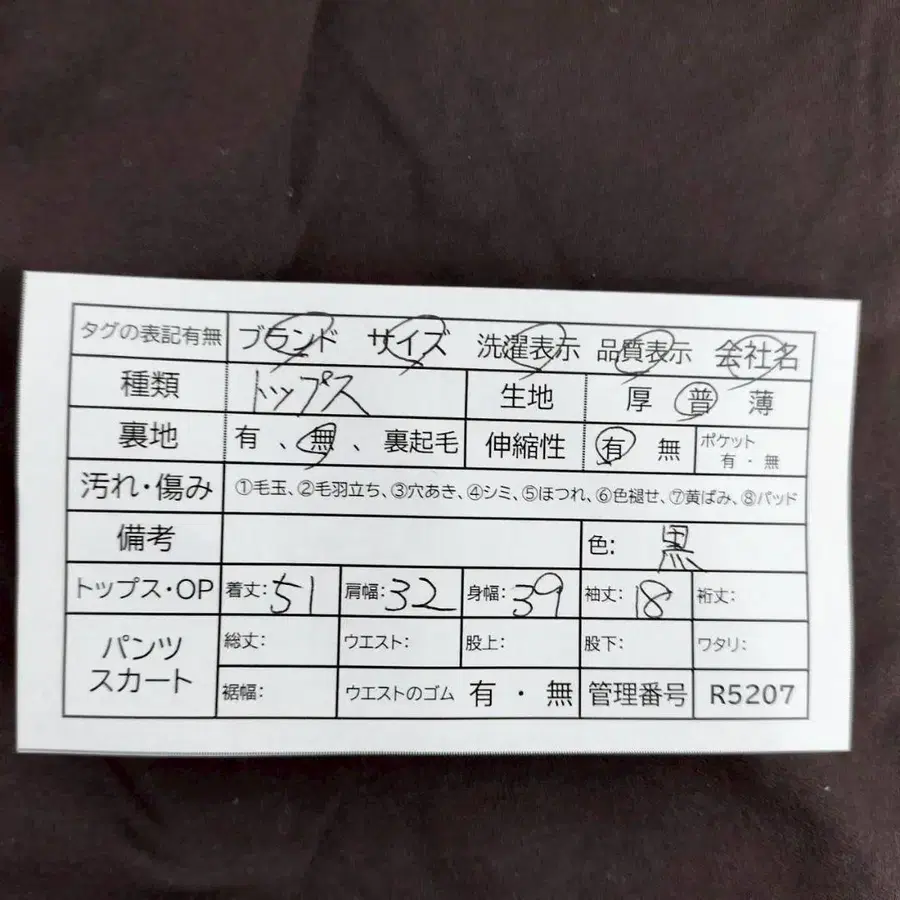 タグの表記有無 ブランド サイズ 洗濯表示 品質表示 会社名
種類 トップス 生地 厚 普 薄
裏地 有 、無 、裏起毛 伸縮性 有 無 ポケット 有・無
汚れ・傷み ①毛玉、②毛羽立ち、③穴あき、④シミ、⑤ほつれ、⑥色褪せ、⑦黄ばみ、⑧パッド
備考 色: 黒
トップス・OP 着丈: 51 肩幅: 32 身幅: 39 袖丈: 18 裄丈:
パンツ スカート 総丈: ウエスト: 股上: 股下: ワタリ:
裾幅: ウエストのゴム 有・無 管理番号 R5207